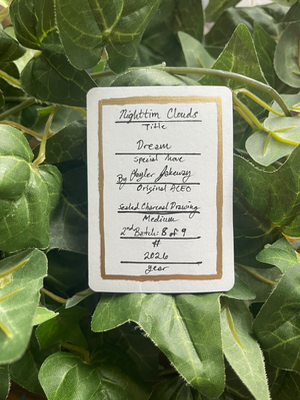 Nighttim Clouds
Title
Dream
Special Move
By
Original ACEO
Sealed Charcoal Drawing
Medium
2nd Batch: 8 of 9
#
2026
year